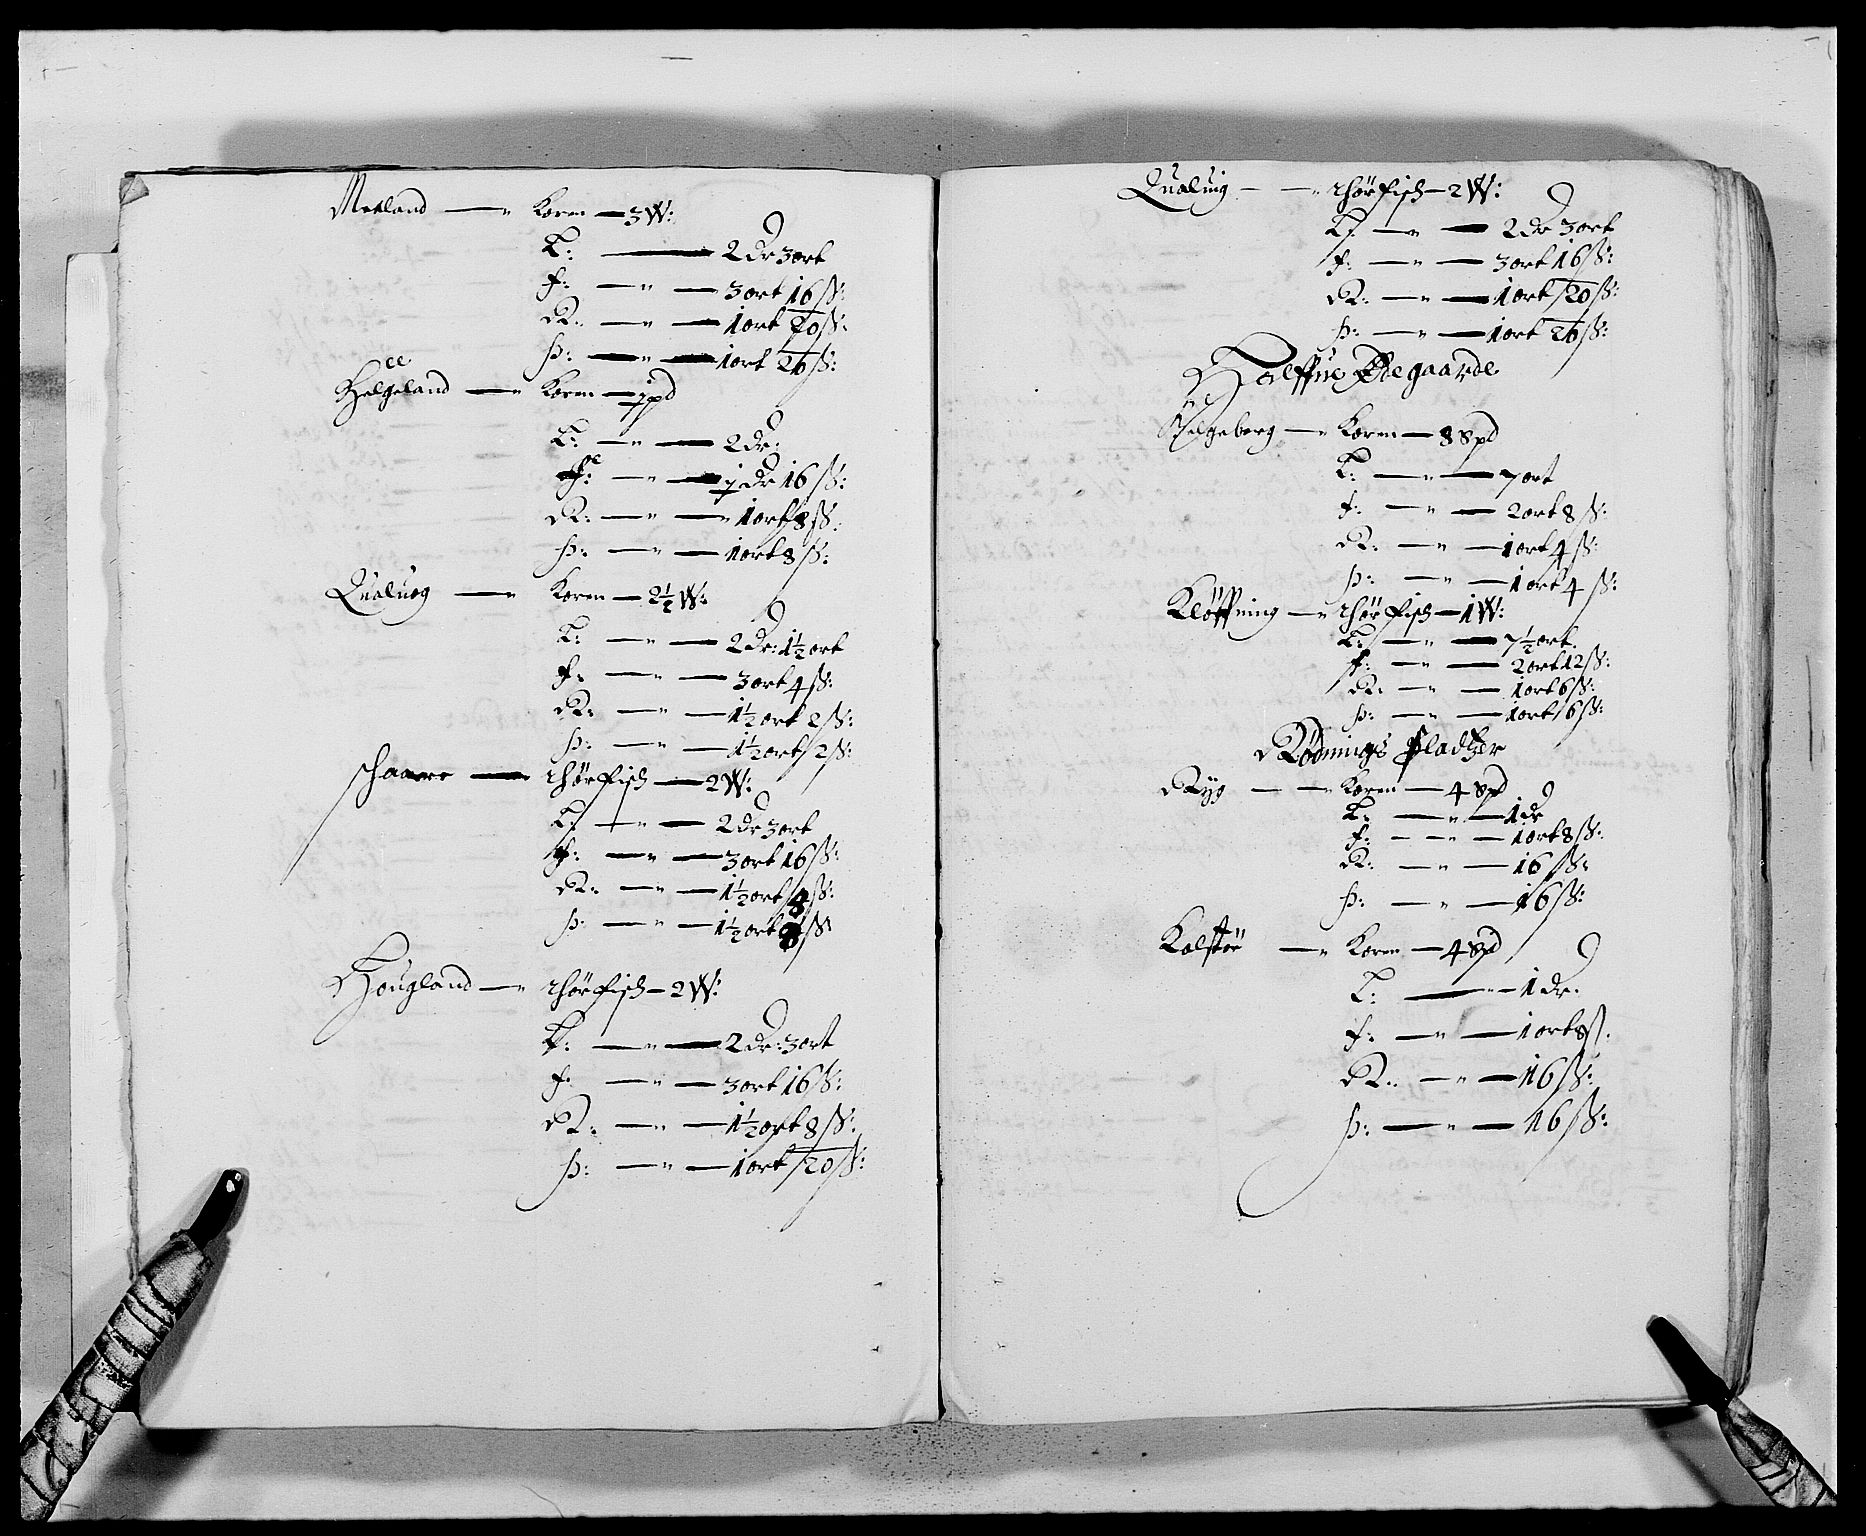 Meeland — Korn — 3 W:
L: — 2 dr 3 ort
F: — „ — 3 ort 16 ß:
R: — „ — 1 ort 20 ß:
H: — „ — 1 ort 20 ß:
Helgeland — „ Korn — 1 pd
L: — „ — 2 dr:
F: — „ — 1 dr 16 ß:
R: — „ — „ 1 ort 8 ß:
H: — „ — 1 ort 8 ß:
Qualuog — „ Korn — 2½ W:
L: — „ — 2 dr: 1½ ort
F: — „ — 3 ort 4 ß:
R: — „ — 1½ ort 2 ß:
H: — „ — 1½ ort 2 ß:
schaarre — thør fisch — 2 W:
L: — „ — 2 dr 3 ort
F: — „ — 3 ort 16 ß:
R: — „ — 1½ ort 8 ß:
H: — „ — 1½ ort 8 ß
Hougland — „ thør fisch — 2 W:
L: — „ — 2 dr: 3 ort
F: — „ — 3 ort 16 ß:
R: — „ — 1½ ort 8 ß:
H: — „ — 1 ort 20 ß:
Qualuig — „ thør fisch — 2 W:
L: — „ — 2 dr 3 ort
F: — „ — 3 ort 16 ß:
R: — „ — 1 ort 20 ß:
H: — „ — 1 ort 20 ß:
Halffue Ødegaarde
Helgeberg — „ Korn — 8 spd
L: — „ — 7 ort
F: — „ — 2 ort 8 ß:
R: — „ — 1 ort 4 ß:
H: — „ — 1 ort 4 ß:
Kløffning — „ thør fisch — 1 W:
L: — „ — 7½ ort.
F: — „ — 2 ort 12 ß:
R: — „ — 1 ort 6 ß:
H: — „ — 1 ort 6 ß:
Rødnings Pladtzer
Ryg — „ Korn — 4 spd
L: — „ — 1 dr
F: — „ — 1 ort 8 ß:
R: — „ — 16 ß:
H: — „ — 16 ß:
Kalstøe — „ Korn — 4 spd
L: — „ — 1 dr.
F: — „ — 1 ort 8 ß.
R: — „ — 16 ß:
H: — „ — 16 ß: